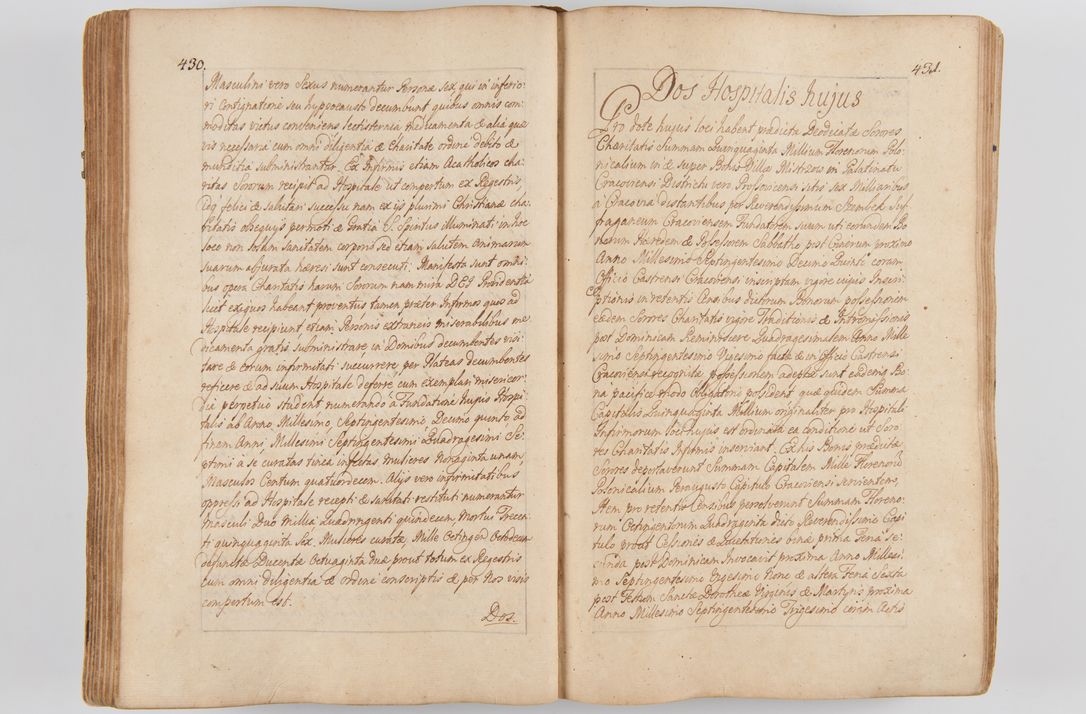 430.
Masculini vero Sexus numerantur Personæ Sex, qui in inferio-
ri Contignatione seu hypocausto decumbunt quibus omnis com-
moditas victus conveniens lectisternia medicamenta & alia quæ-
vis necessaria cum omni diligentia & Charitate ordine debito &
munditia subministrantur. Ex Infirmis etiam Acatholicos cha-
ritas Sororum recipit ad Hospitale ut compertum ex Regestris,
idq; felici & salutari successu nam ex ijs plurimi Christianæ cha-
ritatis obsequijs permoti & Gratia S. Spiritus illuminati in hoc
loco non solum sanitatem corporis sed etiam salutem animarum
suarum abjurata hæresi sunt consecuti. Manifesta sunt omni-
bus opera Charitatis harum Sororum nam mira DEI Providentia
licet exiguos habeant proventus tamen præter Infirmos quos ad
Hospitale recipiunt, etiam Personis extraneis miserabilibus me-
dicamenta gratis subministrare, in Domibus decumbentes visi-
tare & eorum infirmitati succurrere, per Plateas decumbentes
reficere & ad suum Hospitale deferre cum exemplari misericor-
dia perpetuo student numerando a Fundatione hujus Hospi-
talis ab Anno Millesimo Septingentesimo Decimo quinto, ad
finem Anni Millesimi Septingentesimi Quadragesimi Se-
ptimi a se curatas tinea infectas mulieres Nonaginta unam,
Masculos Centum quatuordecem. Alijs vero infirmitatibus
oppressi ad Hospitale recepti & sanitati restituti numerantur
masculi Duo Millia Quadringenti quindecem, Mortui Trecen-
ti quinquaginta Sex Mulieres curatæ Mille Octingen Octodecim
defunctæ Ducentæ Octuaginta duæ prout totum ex Regestris
cum omni diligentia & ordine conscriptis & per Nos visis
compertum est.
Dos.
431.
Dos Hospitalis hujus
Pro dote hujus loci habent prædictæ Deodicatæ Sorores
Charitatis Summam Quinquaginta Millium Florenorum Polo-
nicalium in & super Bonis Villæ Mistrzow in Palatinatu
Cracoviensi Districtu vero Proszovicensi sitis sex Milliaribus
a Cracovia distantibus per Reverendissimum Szembek Suf-
fraganeum Cracoviensem Fundatorem suum uti eorundem Bo-
norum Hæredem & Possessorem Sabbatho post Cinerum proximo
Anno Millesimo Septingentesimo Decimo Quinto coram
Officio Castrensi Cracoviensi inscriptam vigore cujus Inscri-
ptionis in retentis Census dictorum Bonorum possessionem
eædem Sorores Charitatis vigore Traditionis & Intromissionis
post Dominicam Reminiscere Quadragesimalem Anno Mille-
simo Septingentesimo Vigesimo factæ & in Officio Castrensi
Cracoviensi recognitæ possessionem adeptæ sunt eademq; Bo-
na pacifice modo obligatorio possident quæ quidem Summa
Capitalis Quinquaginta Millium originaliter pro Hospitali
Infirmorum loci hujus est ordinata ea conditione ut Soro-
res Charitatis Infirmis inserviant. Ex his Bonis prædictæ
Sorores deportaverunt Summam Capitalem Mille Florenorũ
Polonicalium Peraugusto Capitulo Cracoviensi servientem,
Item pro retentis Censibus persolverunt Summam Floreno-
rum Octingentorum Quadraginta dicto Reverendissimo Capi-
tulo prout Cessiones & Quietationes binæ prima Feria se-
cunda post Dominicam Invocavit proxima Anno Millesi-
mo Septingentesimo Vigesimo Nono & altera Feria Sexta
post Festum Sanctæ Dorotheæ Virginis & Martyris proxima
Anno Millesimo Septingentesimo Trigesimo coram Actis